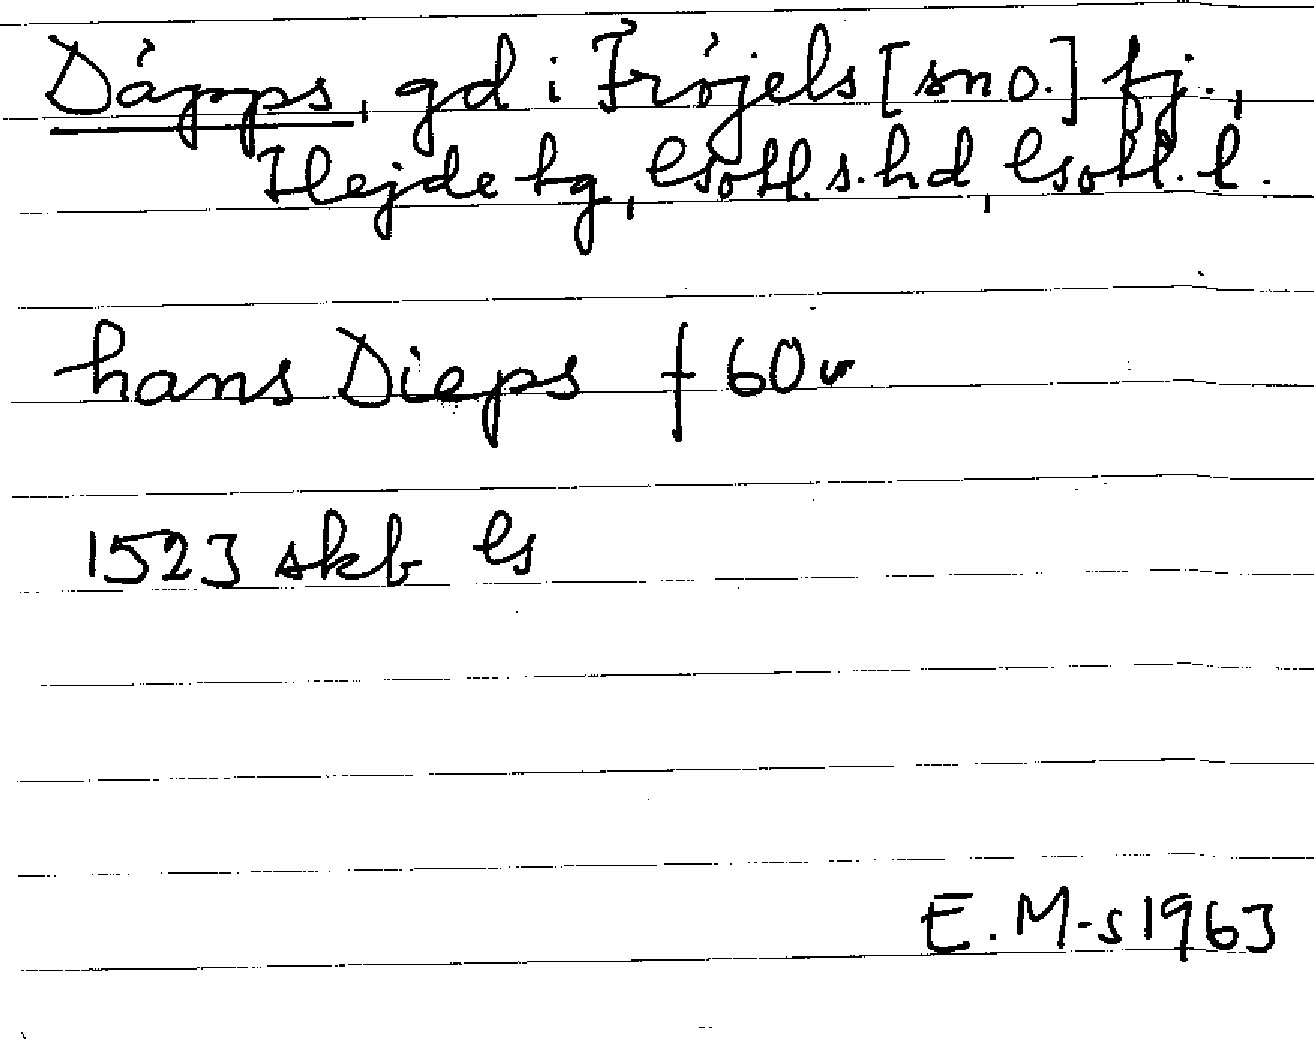 Däpps, gd i Fröjels [sn o.] tj.,
Hejde tg, Gotl. s. hd, Gotl. l.
hans Dieps † 60
1523 skb G
E. M-s 1963